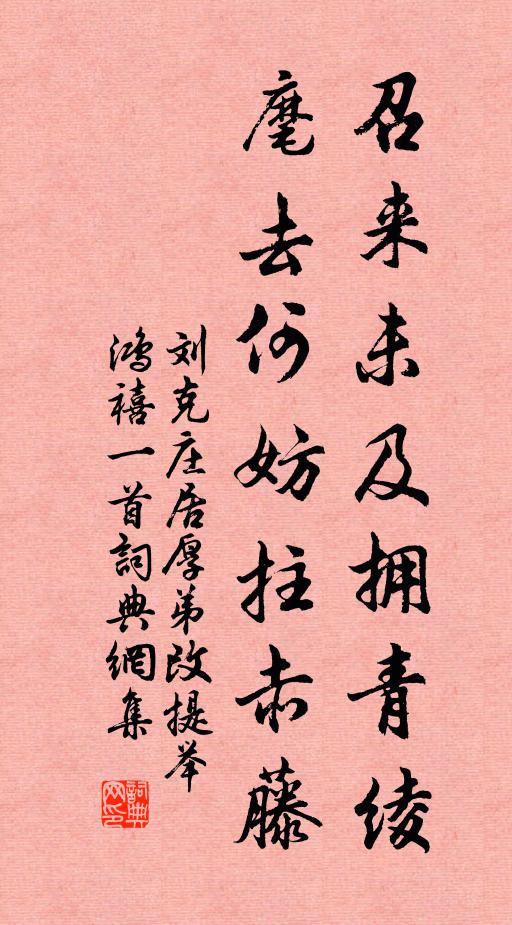 召来未及拥青绫
麾去何妨拄赤藤
刘克庄居厚弟改提举
鸿禧一首詞典網集
詞典網印